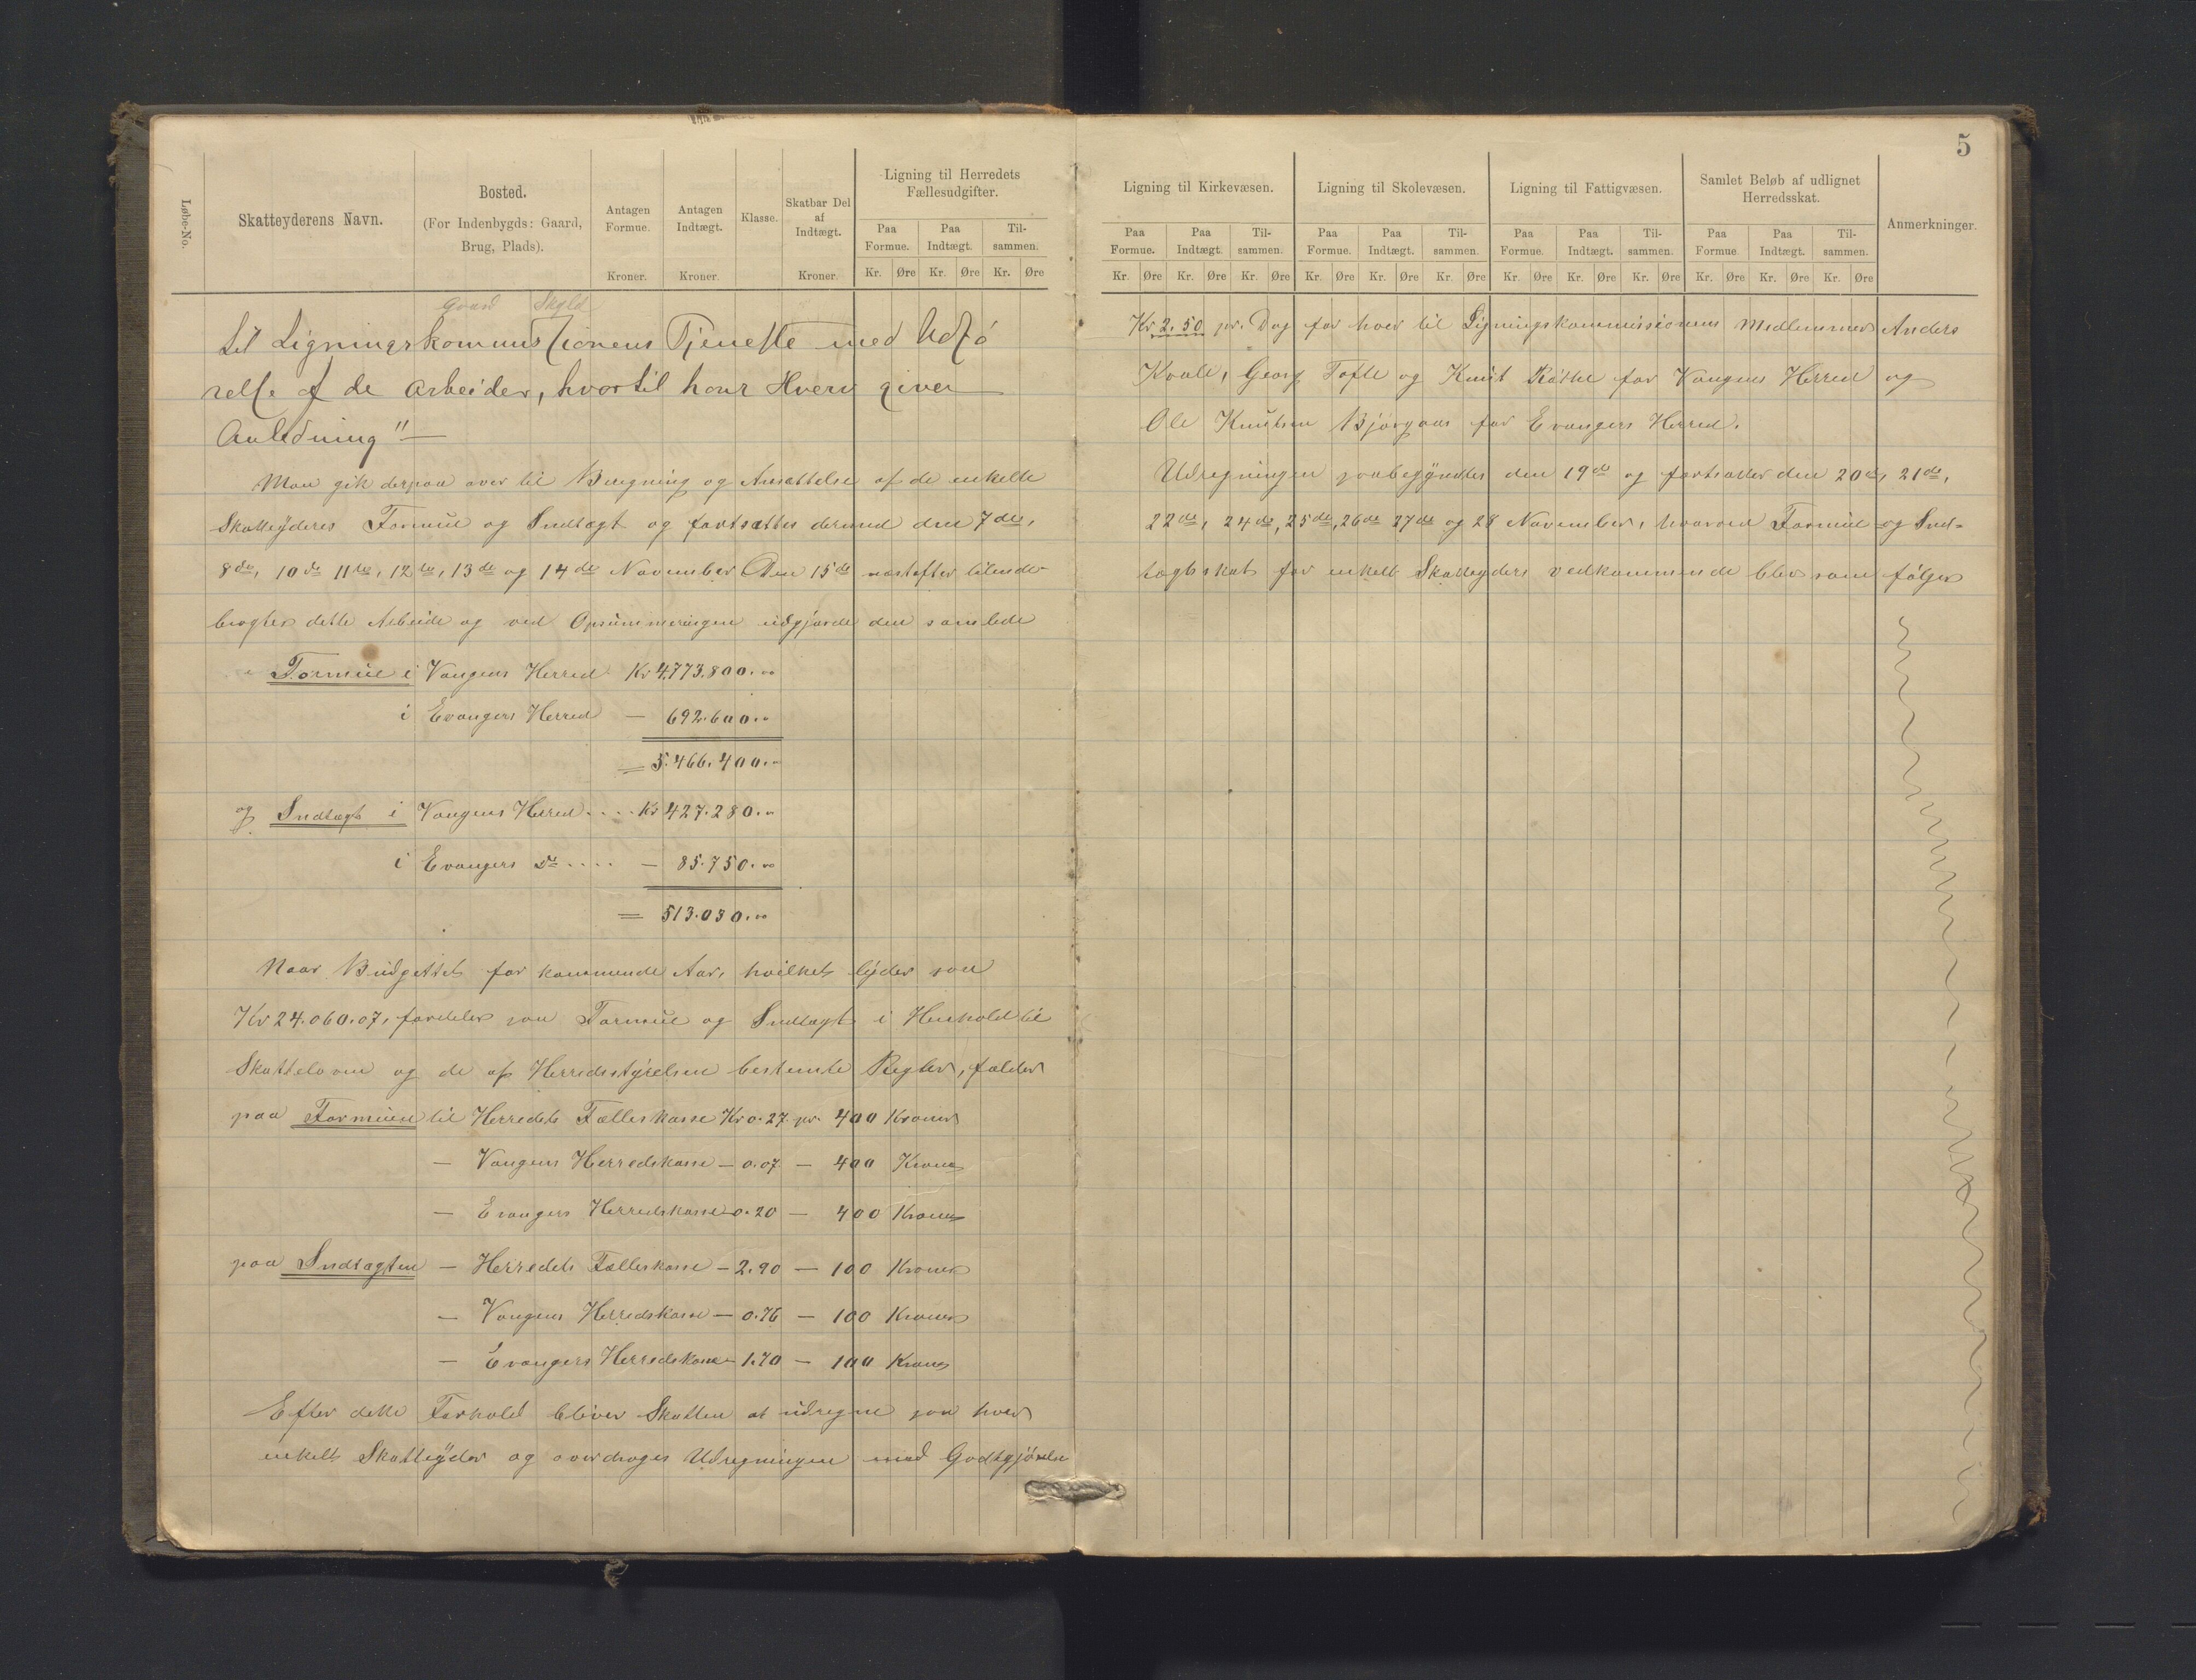 5
Løbe-No.
Skatteyderens Navn.
Bosted.
(For Indenbygds: Gaard,
Brug, Plads).
Antagen
Formue.
Kroner.
Antagen
Indtægt.
Kroner.
Klasse.
Skatbar Del
af
Indtægt.
Kroner.
Ligning til Herredets
Fællesudgifter.
Paa Formue. Paa Indtægt. Til-sammen.
Kr. Øre Kr. Øre Kr. Øre
Gaard Skyld
til Ligningskommissionens Tjeneste med Udfø
relse af de Arbeider, hvortil hans Hverv giver
Anledning"—
Man gik derpaa over til Beregning og Ansættelse af de enkelte
Skatteyderes Formue og Indtægt og fortsattes dermed den 7de,
8de, 10de 11te, 12te, 13de og 14de November Den 15de næstefter tilende-
bragtes dette Arbeide og ved Opsummeringen udgjorde den samlede
Formue i Vangens Herred Kr 4.773.800.00
i Evangers Herred — 692.600.00
= 5.466.400.00
og Indtægt i Vangens Herred .... Kr 427.280.00
i Evangers Do .... — 85.750.00
= 513.030.00
Naar Budgettet for kommende Aar, hvilket lyder paa
Kr 24.060.07, fordeles paa Formue og Indtægt i Henhold til
Skatteloven og de af Herredsstyrelsen bestemte Regler, falder
paa Formuen til Herredets Fælleskasse Kr 0.27 pr. 400 Kroner
— Vangens Herredskasse — 0.07 — 400 Kroner
— Evangers Herredskasse — 0.20 — 400 Kroner
paa Indtægten — Herredets Fælleskasse — 2.90 — 100 Kroner
— Vangens Herredskasse — 0.76 — 100 Kroner
— Evangers Herredskasse — 1.70 — 100 Kroner
Efter dette Forhold bliver Skatten at udregne paa hver
enkelt Skatteyder og overdroges Udregningen med Godtgjørelse
Ligning til Kirkevæsen.
Paa Formue. Paa Indtægt. Til-sammen.
Kr. Øre Kr. Øre Kr. Øre
Ligning til Skolevæsen.
Paa Formue. Paa Indtægt. Til-sammen.
Kr. Øre Kr. Øre Kr. Øre
Ligning til Fattigvæsen.
Paa Formue. Paa Indtægt. Til-sammen.
Kr. Øre Kr. Øre Kr. Øre
Samlet Beløb af udlignet
Herredsskat.
Paa Formue. Paa Indtægt. Til-sammen.
Kr. Øre Kr. Øre Kr. Øre
Anmerkninger.
Kr 2.50 pr. Dag for hver til Ligningskommissionens Medlemmer Anders
Kvale, Georg Tofte og Knut Røthe for Vangens Herred og
Ole Knutsen Bjørgaas for Evangers Herred.
Udregningen paabegyndtes den 19de og fortsattes den 20de, 21de,
22de, 24de, 25de, 26de 27de og 28 November, hvorved Formue- og Ind-
tægtsskat for enkelt Skatteyders vedkommende blev som følger